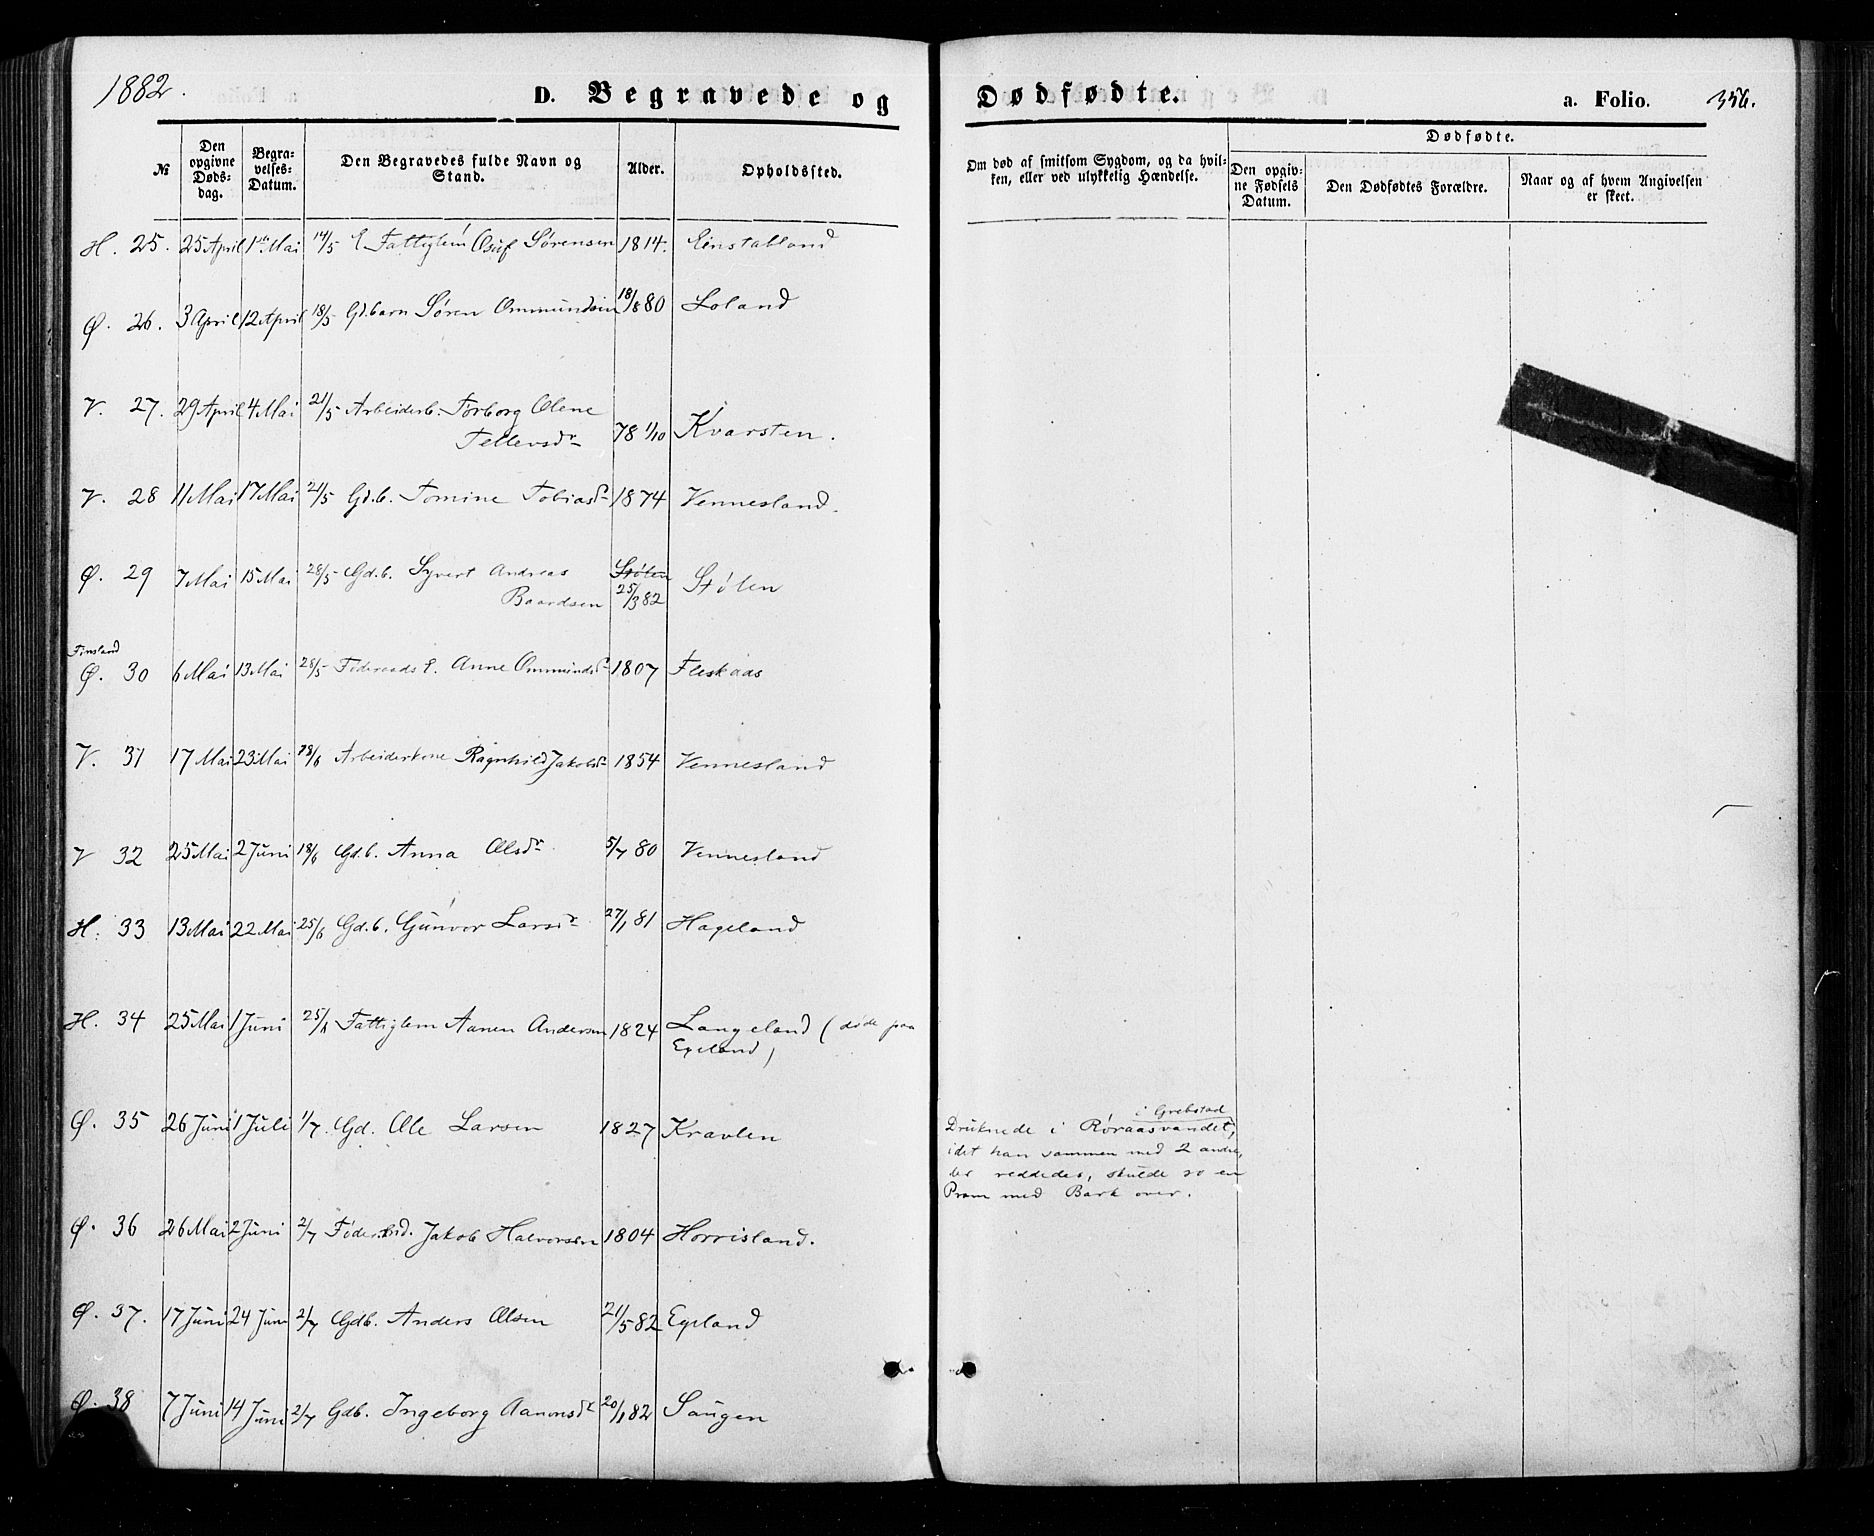 1882.
D. Begravede og
Dødfødte.
a. Folio. 356.
№
Den opgivne Døds-dag.
Begra-velses-Datum.
Den Begravedes fulde Navn og Stand.
Alder.
Opholdssted.
Om død af smitsom Sygdom, og da hvil-ken, eller ved ulykkelig Hændelse.
Dødfødte.
Den opgiv-ne Fødsels Datum.
Den Dødfødtes Forældre.
Naar og af hvem Angivelsen er skeet.
H. 25. 25 April 1ste Mai 14/5 Fattiglem Sørensen 1814. Einstabland
Ø. 26. 3 April 12 April 18/5 Gd.barn Søren Ommundsen 18/8 80 Loland
V. 27. 29 April 4 Mai 21/5 Arbeiderb. Torborg Olene
Tellevsdr 78 1/10 Kvarsten.
V. 28 11 Mai 17 Mai 21/5 Gd.b. Tomine Tobiasdr 1874 Vennesland.
Ø. 29 7 Mai 15 Mai 28/5 Gd.b. Syvert Andreas Stølen
Baardsen 25/3 82 Stølen
Finsland
Ø. 30 6 Mai 13 Mai 28/5 Føderaads E. Anne Ommundsdr 1807 Fleskaas
V. 31 17 Mai 23 Mai 18/6 Arbeiderkone Ragnhild Jakobsdr 1854 Vennesland
V 32 25 Mai 2 Juni 18/6 Gd.b. Anna Olsdr 5/7 80 Vennesland
H. 33 13 Mai 22 Mai 25/6 Gd.b. Gunvor Larsdr 27/1 81 Hageland
H. 34 25 Mai 1 Juni 25/6 Fattiglem Aanen Andersen 1824 Langeland (døde paa
Egeland)
Ø. 35 26 Juni 1 Juli 1/7. Gd. Ole Larsen 1827 Kravlen
i Grebstad
Druknede i Røraasvandet,
idet han sammen med 2 andre,
der reddedes, skulde ro en
Pram med Bark over.
Ø. 36 26 Mai 2 Juni 2/7 Jakob Halvorsen 1804 Horrisland.
Ø. 37. 17 Juni 24 Juni 2/7 Gdb. Anders Olsen 21/5 82 Egeland
Ø. 38 7 Juni 14 Juni 2/7 Gdb. Ingeborg Aanonsdr 20/1 82 Saugen